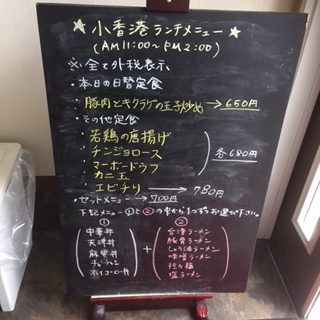 ★小香港ランチメニュー★
(AM11:00〜PM2:00)
※全て外税表示
・本日の日替定食
・豚肉とキクラゲの玉子炒め→650円
・その他定食
・若鶏の唐揚げ
・チンジョロース
・マーボードウフ
・カニ玉
各680円
・エビチリ→780円
・セットメニュー→700円
下記メニュー①と②の中から1つずつお選び下さい。
①
中華丼
天津丼
麻婆丼
チャーハン
②
台湾ラーメン
豚骨ラーメン
しょうゆラーメン
味噌ラーメン
担々麺
塩ラーメン